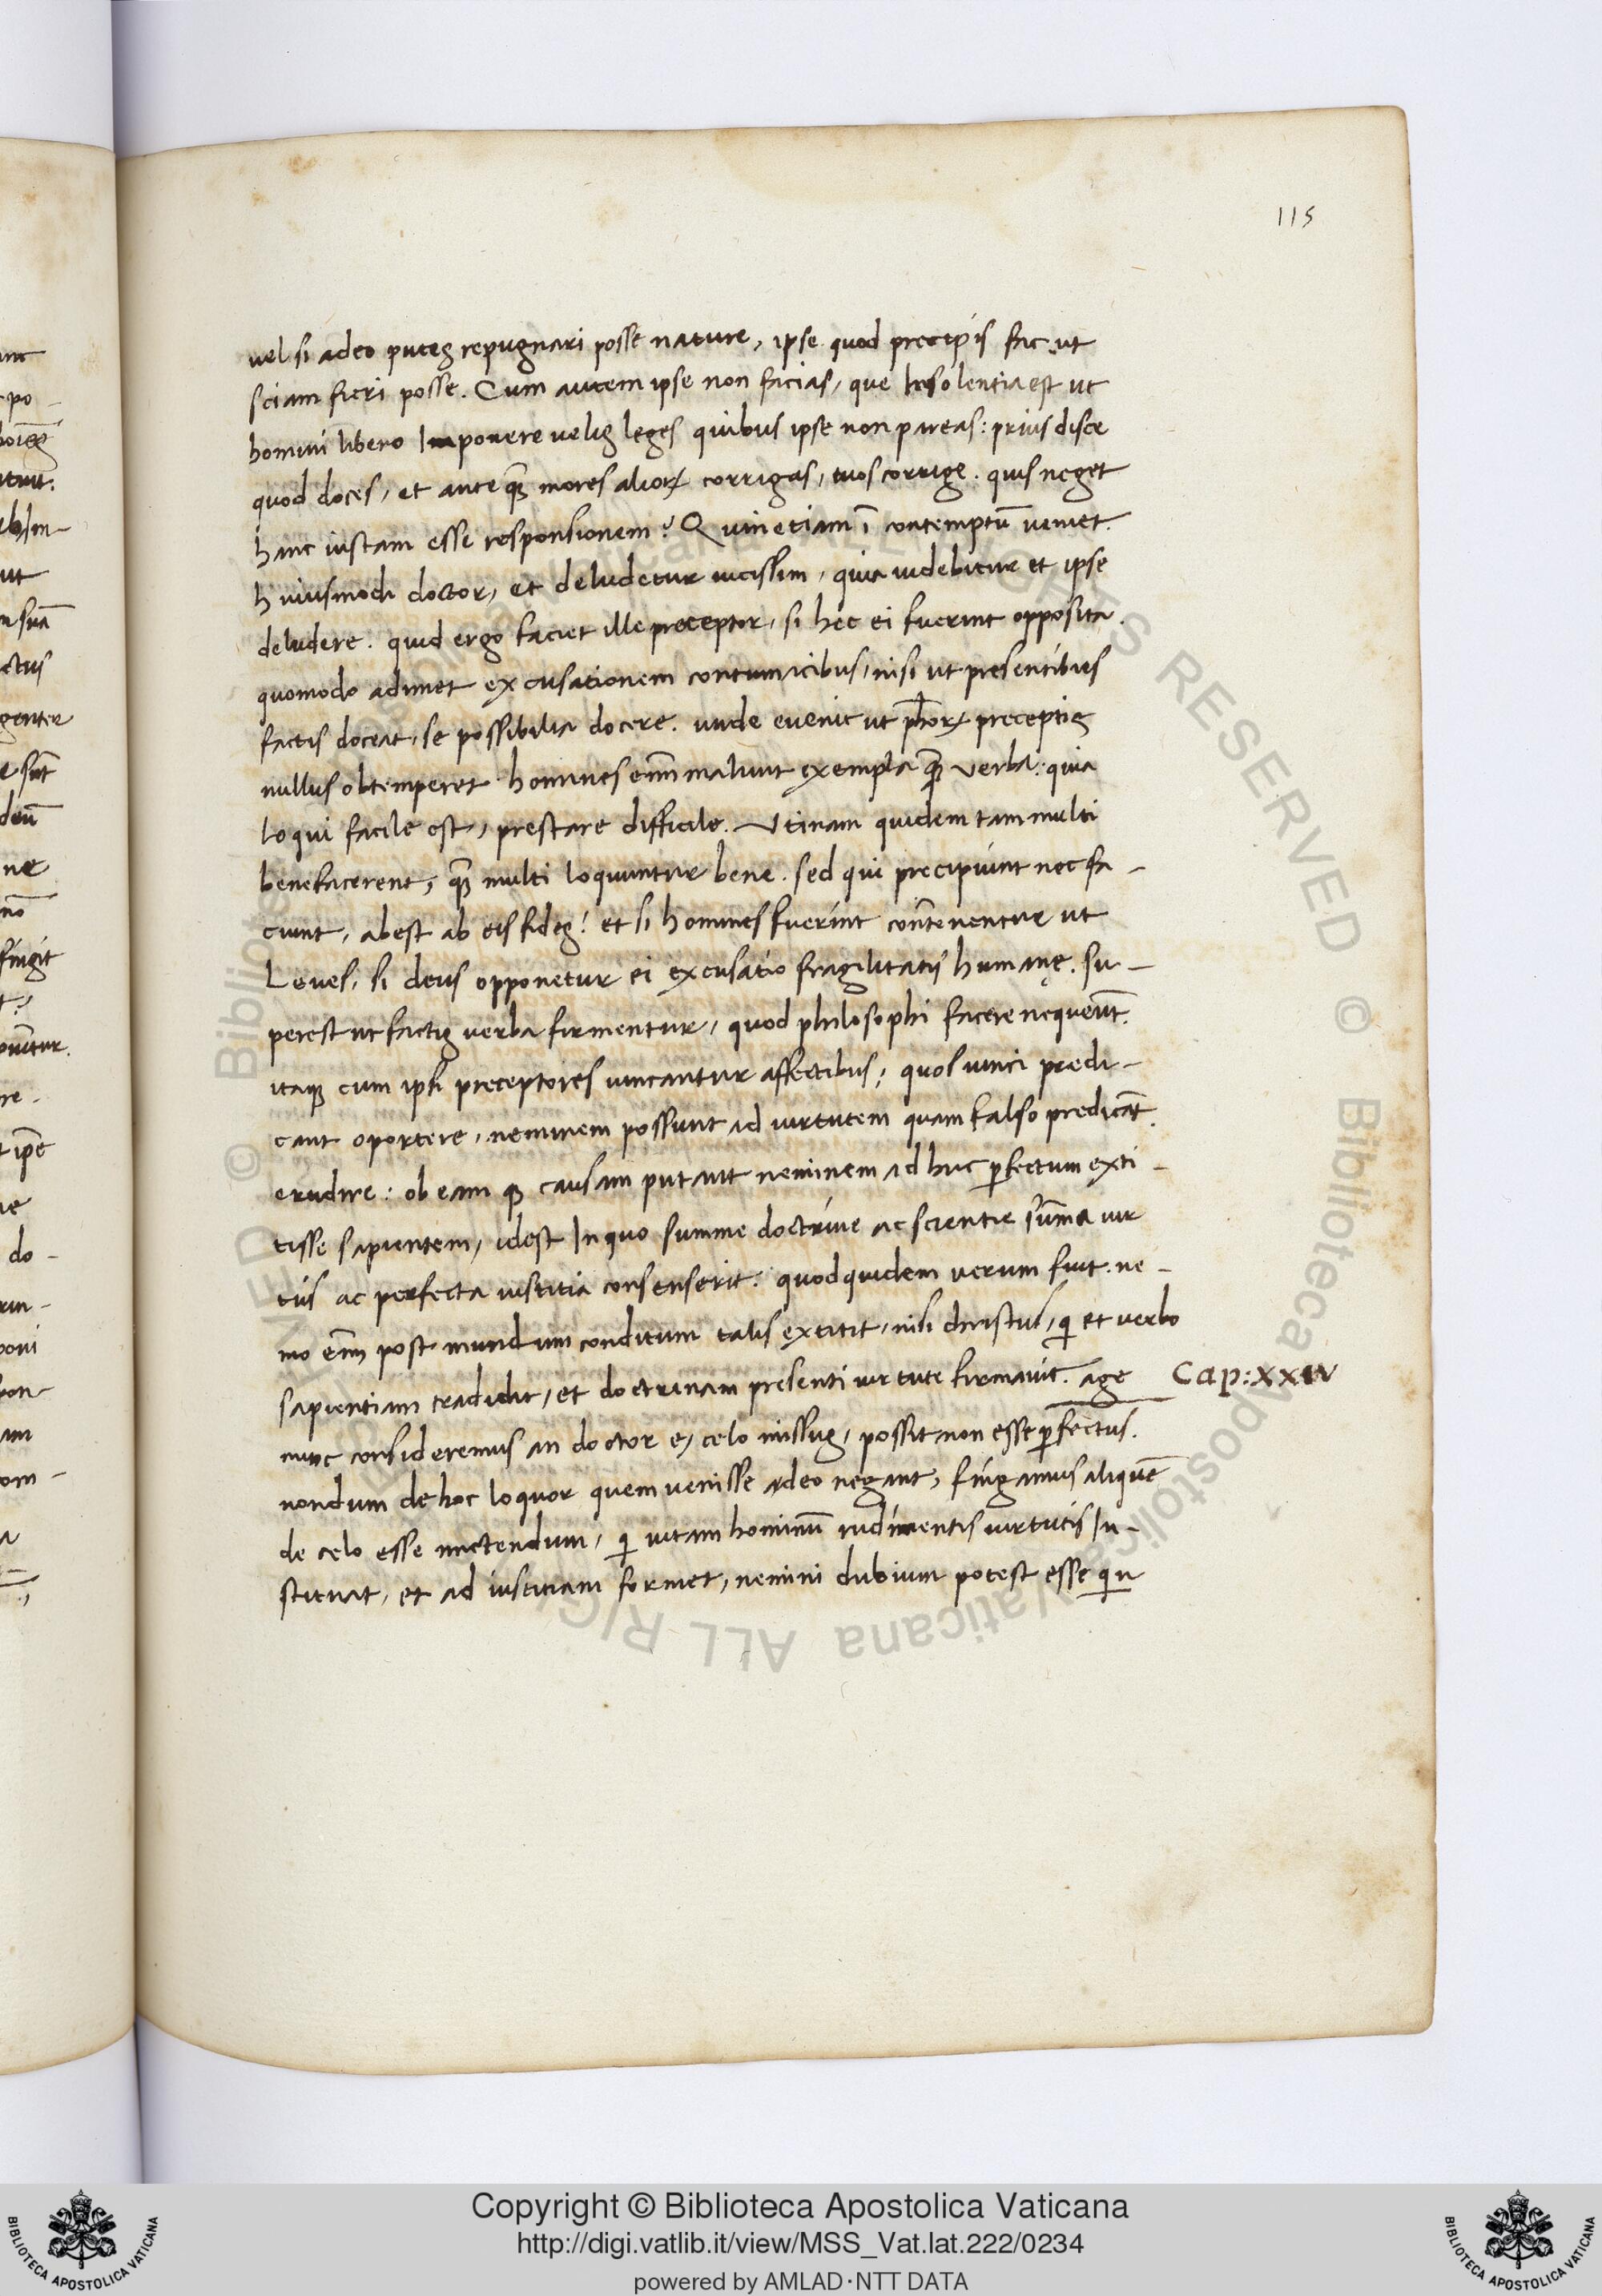 115
uel si adeo putes repugnari posse nature, ipse quod precipis fac, ut
sciam fieri posse. Cum autem ipse non facias, que Insolentia est ut
homini libero Imponere uelis leges quibus ipse non pareas: prius disce
quod doces, et ante q̃ mores alioꝝ corrigas, tuos corrige. quis neget
hanc iustam esse responsionem? Quin etiam ĩ contemptũ ueniet
huiusmodi doctor, et deludetur uicissim, quia uidebitur et ipse
deludere. quid ergo faciet ille preceptor, si hec ei fuerint opposita.
quomodo adimet excusationem contumacibus, nisi ut presentibus
factis doceat, se possibilia docere. unde euenit ut ph̃oꝝ preceptis
nullus obtemperet. homines enim̃ malunt exempla q̃ uerba: quia
loqui facile est, prestare difficile. Utinam quidem tam multi
benefacerent, q̃ multi loquuntur bene. sed qui precipiunt nec fa-
ciunt, abest ab eis fides: et si homines fuerint contẽnentur ut
Leues, si deus opponetur ei excusatio fragilitatis humanę. su-
perest ut factis uerba firmentur, quod philosophi facere nequeũt.
itaqꝫ cum ipsi preceptores uincantur affectibus, quos uinci predi-
cant oportere, neminem possunt ad uirtutem quam falso predicãt
erudire: ob eam qꝫ causam putant neminem ad huc ꝑfectum exti-
tisse sapientem, idest In quo summe doctrine ac scientie sũma uir
tus ac perfecta iustitia consenserit. quod quidem uerum fuit. ne-
mo enĩ post mundum conditum talis extitit, nisi christus, qi et uerbo
sapientiam tradidit, et doctrinam presenti uirtute firmauit. age
Cap: xxiv
nunc consideremus an doctor e celo missus, possit non esse ꝑfectus.
nondum de hoc loquor quem uenisse adeo negant, fingamus aliquẽ
de celo esse mictendum, qi uitam hominũ rudimentis uirtutis In-
stituat, et ad iustitiam formet, nemini dubium potest esse qin
Copyright © Biblioteca Apostolica Vaticana
http://digi.vatlib.it/view/MSS_Vat.lat.222/0234
powered by AMLAD·NTT DATA